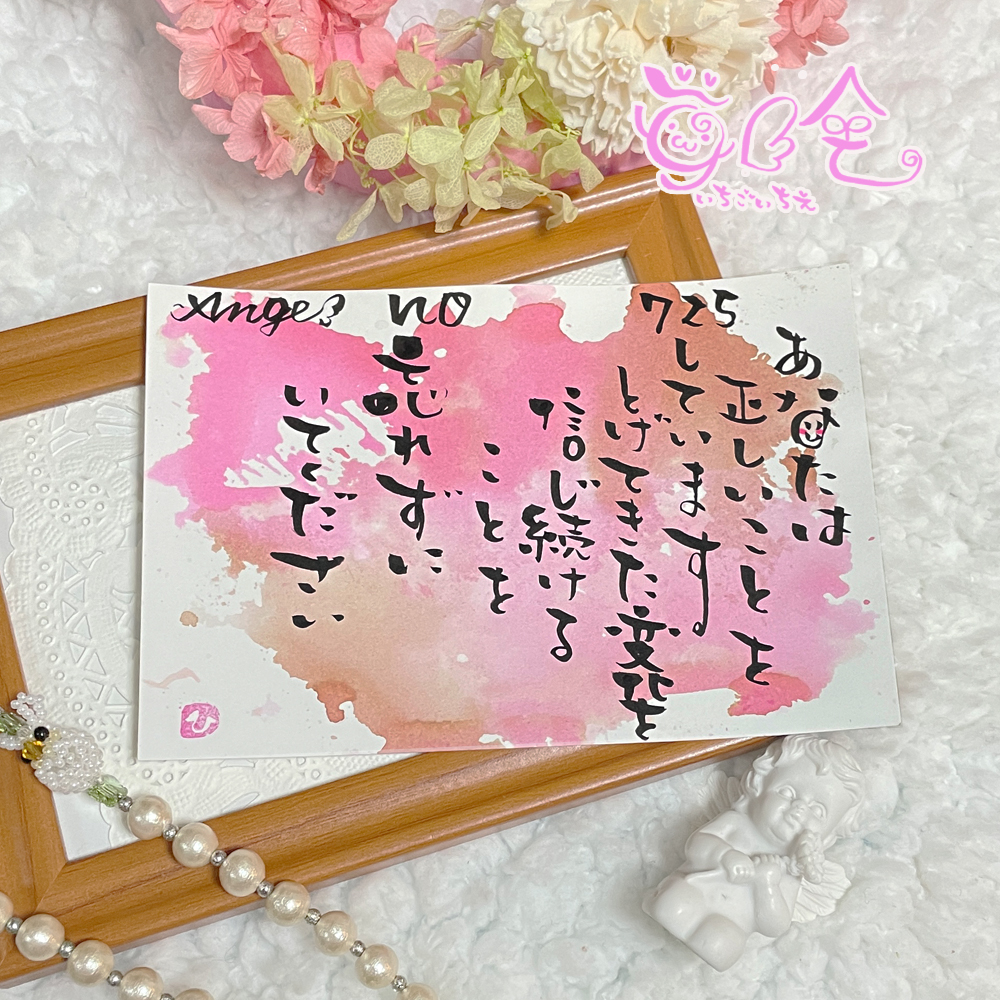 Angel no 725
あなたは
正しいことを
しています
とげてきた変化を
信じ続ける
ことを
忘れずに
いてください
いちごいちえ
ひ